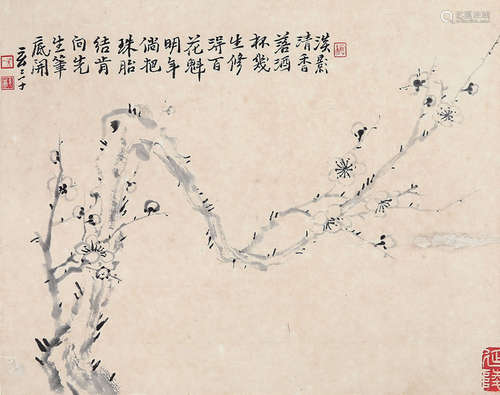 淡影
清香
落酒
杯幾
生修
淂百
花魁
明年
倘把
珠胎
結肯
向先
生筆
底開